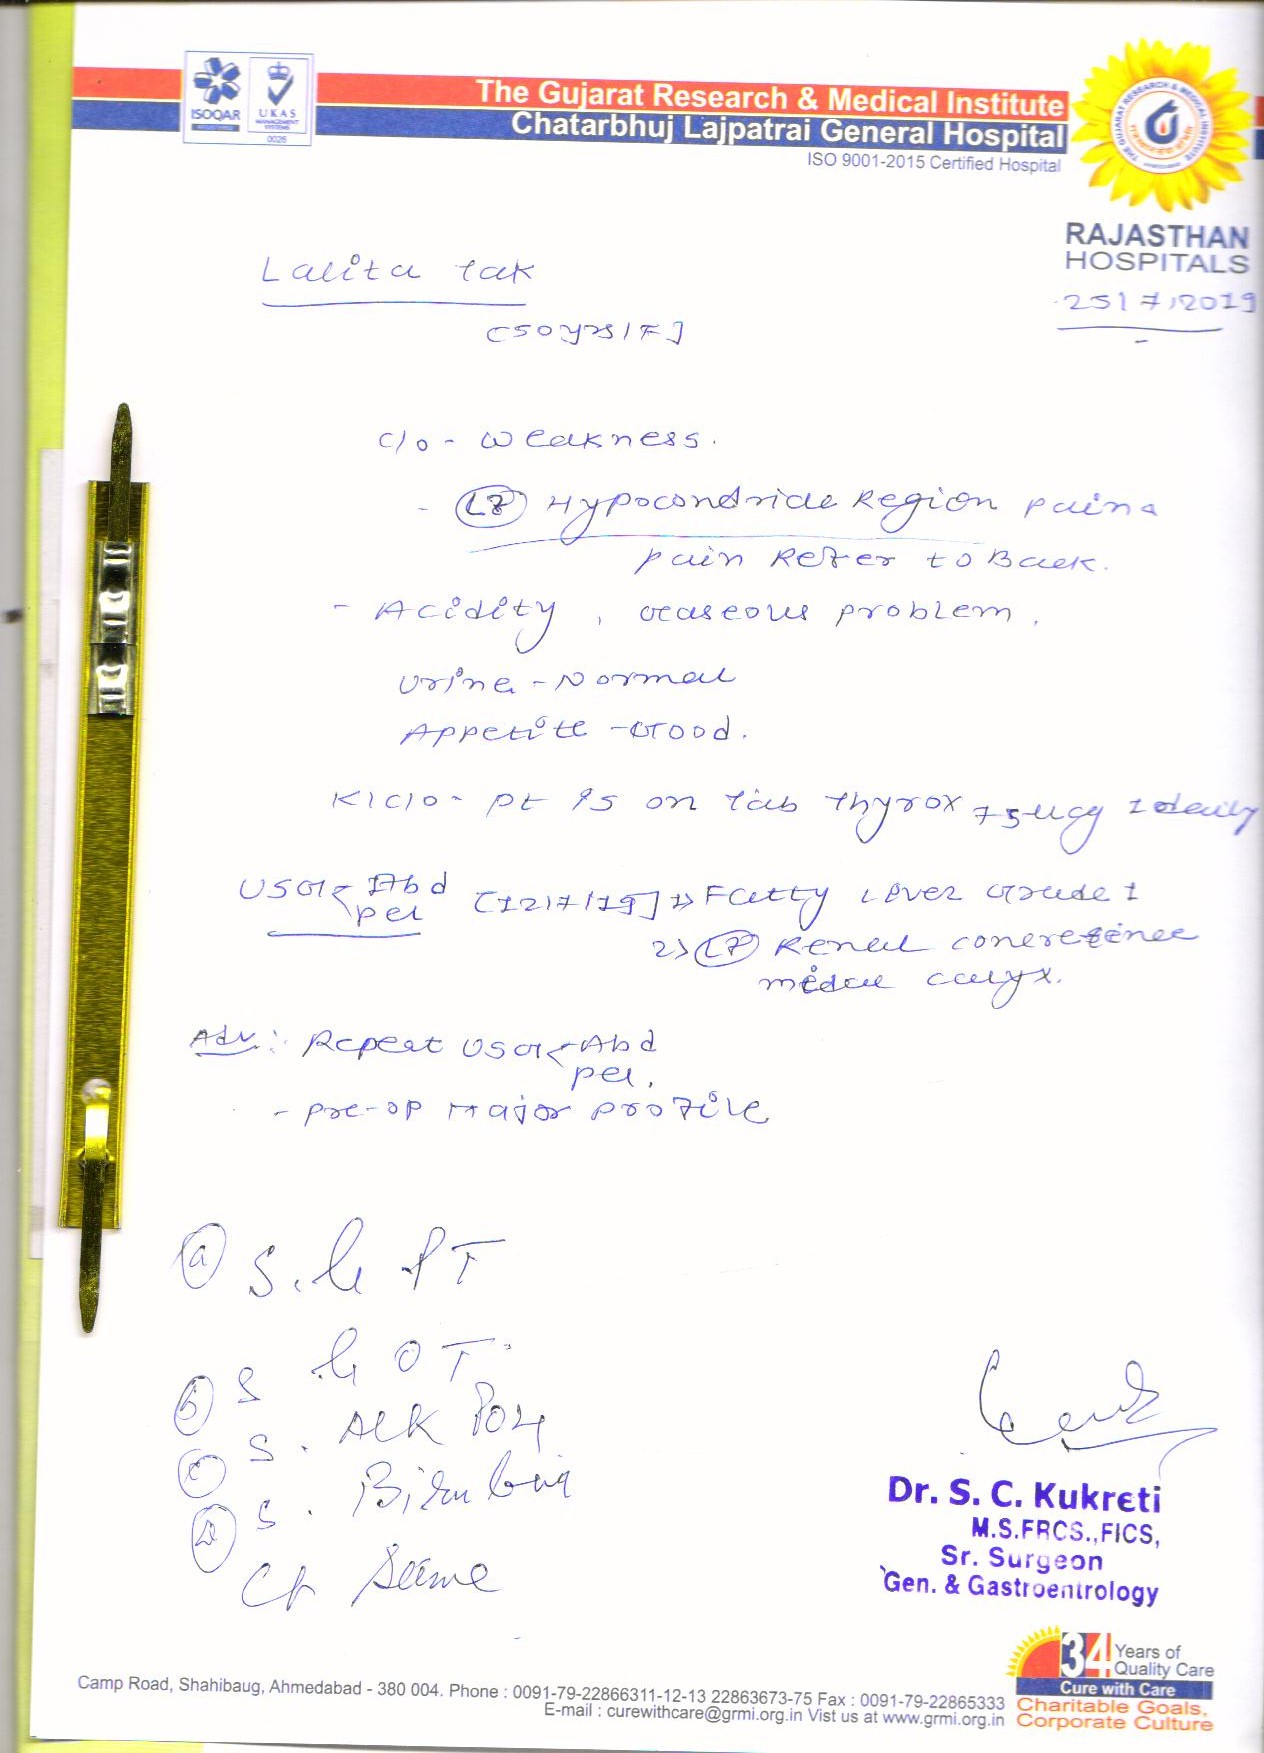 ISOQAR
REGISTERED
UKAS
MANAGEMENT
SYSTEMS
0026
The Gujarat Research & Medical Institute
Chatarbhuj Lajpatrai General Hospital
ISO 9001-2015 Certified Hospital
THE GUJARAT RESEARCH & MEDICAL INSTITUTE
RAJASTHAN
HOSPITALS
25/7/2019
Lalita Tak
[50yrs/F]
c/o - Weakness.
- Hypocondriac Region pain
pain Refer to Back.
- Acidity, Gaseous problem.
Urine - Normal
Appetite - Good.
K/C/O - pt is on Tab Thyrox 75 ucg 1 daily
USG Abd
pel [12/7/19] 1> Fatty Liver Grade 1
2> Renal
calyx.
Adv: Repeat USG Abd
pel.
- pre-op Major profile
(a) S.G PT
(b) S G OT
(c) S. Alk
(D) S. Bilirubin
Dr. S. C. Kukreti
M.S.FRCS.,FICS,
Sr. Surgeon
Gen. & Gastroentrology
34 Years of
Quality Care
Cure with Care
Charitable Goals,
Corporate Culture
Camp Road, Shahibaug, Ahmedabad - 380 004. Phone : 0091-79-22866311-12-13 22863673-75 Fax : 0091-79-22865333
E-mail : curewithcare@grmi.org.in Vist us at www.grmi.org.in